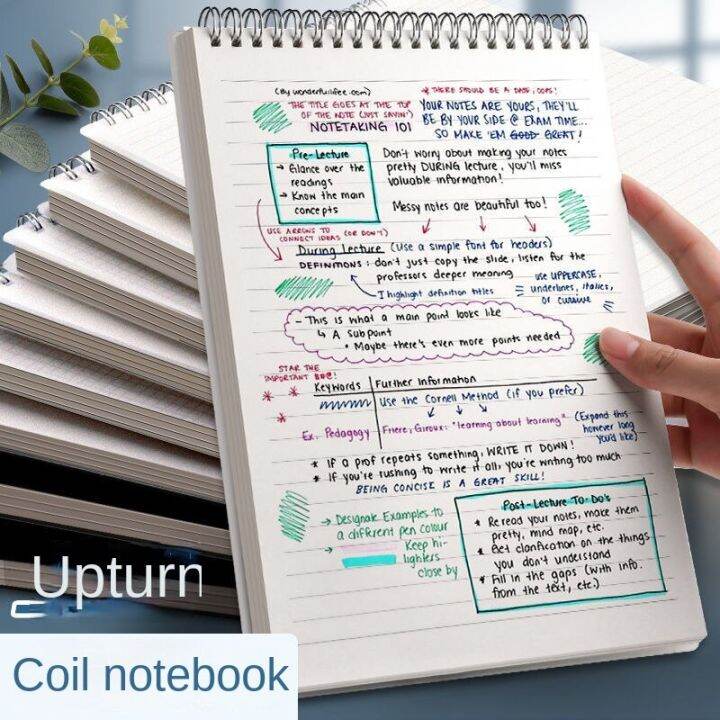 (By wonderfullifee.com)
* THERE SHOULD BE A DASH, OOPS!
THE TITLE GOES AT THE TOP
OF THE NOTE (JUST SAYIN')
NOTETAKING 101
YOUR NOTES ARE YOURS, THEY'LL
BE BY YOUR SIDE @ EXAM TIME...
SO MAKE 'EM GOOD GREAT!
Pre-Lecture
→ Glance over the
readings
→ Know the main
concepts
Don't worry about making your notes
pretty DURING lecture, you'll miss
valuable information!
Messy notes are beautiful too!
USE ARROWS TO
CONNECT IDEAS (OR DON'T)
During Lecture (Use a simple font for headers)
DEFINITIONS: don't just copy the slide, listen for the
professors deeper meaning
I highlight definition titles
use UPPERCASE,
underlines, italics,
or cursive
- This is what a main point looks like
↳ A Subpoint
• Maybe there's even more points needed
STAR THE
IMPORTANT
Keywords
Further Information
Use the Cornell Method (if you prefer)
Ex. Pedagogy
Friere, Giroux: "learning about learning"
(Expand this
however long
you'd like)
* If a prof repeats something, WRITE IT DOWN!
* If you're rushing to write it all, you're writing too much
BEING CONCISE IS A GREAT SKILL!
→ Designate Examples to
a different pen colour
→ Keep hi-
lighters
close by
Post-Lecture To Do's
* Reread your notes, make them
pretty, mind map, etc.
* Get clarification on the things
you don't understand
* Fill in the gaps (with info.
from the text, etc.)
Upturn
Coil notebook